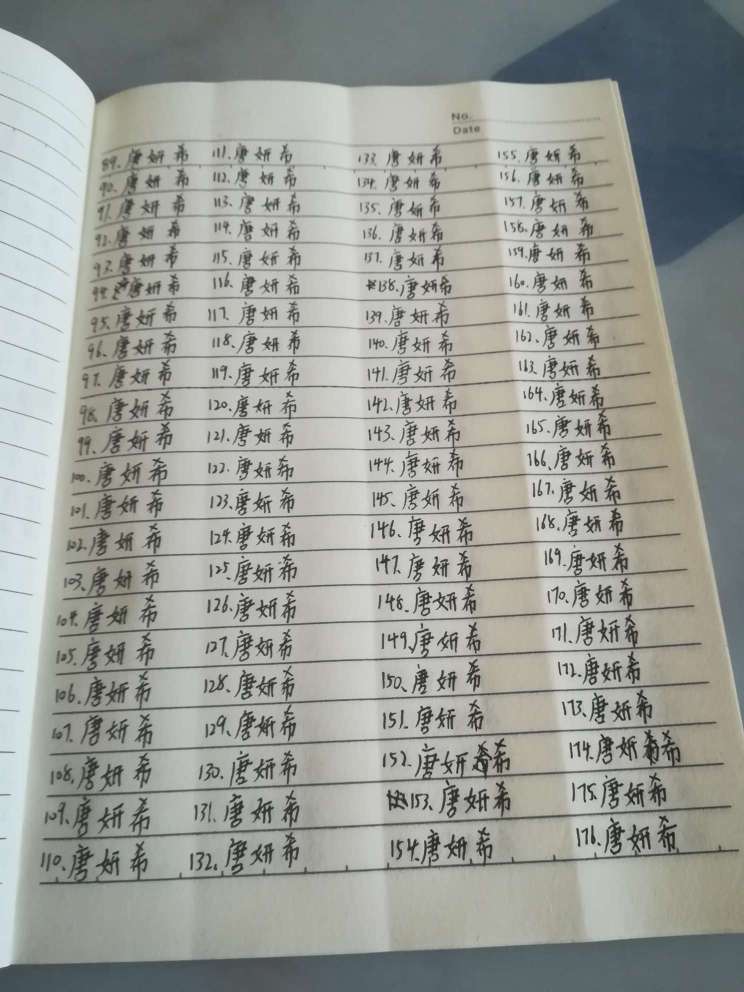 No.
Date
89、唐妍希
90、唐妍希
91、唐妍希
92、唐妍希
93、唐妍希
94、唐妍希
95、唐妍希
96、唐妍希
97、唐妍希
98、唐妍希
99、唐妍希
100、唐妍希
101、唐妍希
102、唐妍希
103、唐妍希
104、唐妍希
105、唐妍希
106、唐妍希
107、唐妍希
108、唐妍希
109、唐妍希
110、唐妍希
111、唐妍希
112、唐妍希
113、唐妍希
114、唐妍希
115、唐妍希
116、唐妍希
117、唐妍希
118、唐妍希
119、唐妍希
120、唐妍希
121、唐妍希
122、唐妍希
123、唐妍希
124、唐妍希
125、唐妍希
126、唐妍希
127、唐妍希
128、唐妍希
129、唐妍希
130、唐妍希
131、唐妍希
132、唐妍希
133、唐妍希
134、唐妍希
135、唐妍希
136、唐妍希
137、唐妍希
138、唐妍希
139、唐妍希
140、唐妍希
141、唐妍希
142、唐妍希
143、唐妍希
144、唐妍希
145、唐妍希
146、唐妍希
147、唐妍希
148、唐妍希
149、唐妍希
150、唐妍希
151、唐妍希
152、唐妍希
153、唐妍希
154、唐妍希
155、唐妍希
156、唐妍希
157、唐妍希
158、唐妍希
159、唐妍希
160、唐妍希
161、唐妍希
162、唐妍希
163、唐妍希
164、唐妍希
165、唐妍希
166、唐妍希
167、唐妍希
168、唐妍希
169、唐妍希
170、唐妍希
171、唐妍希
172、唐妍希
173、唐妍希
174、唐妍希
175、唐妍希
176、唐妍希